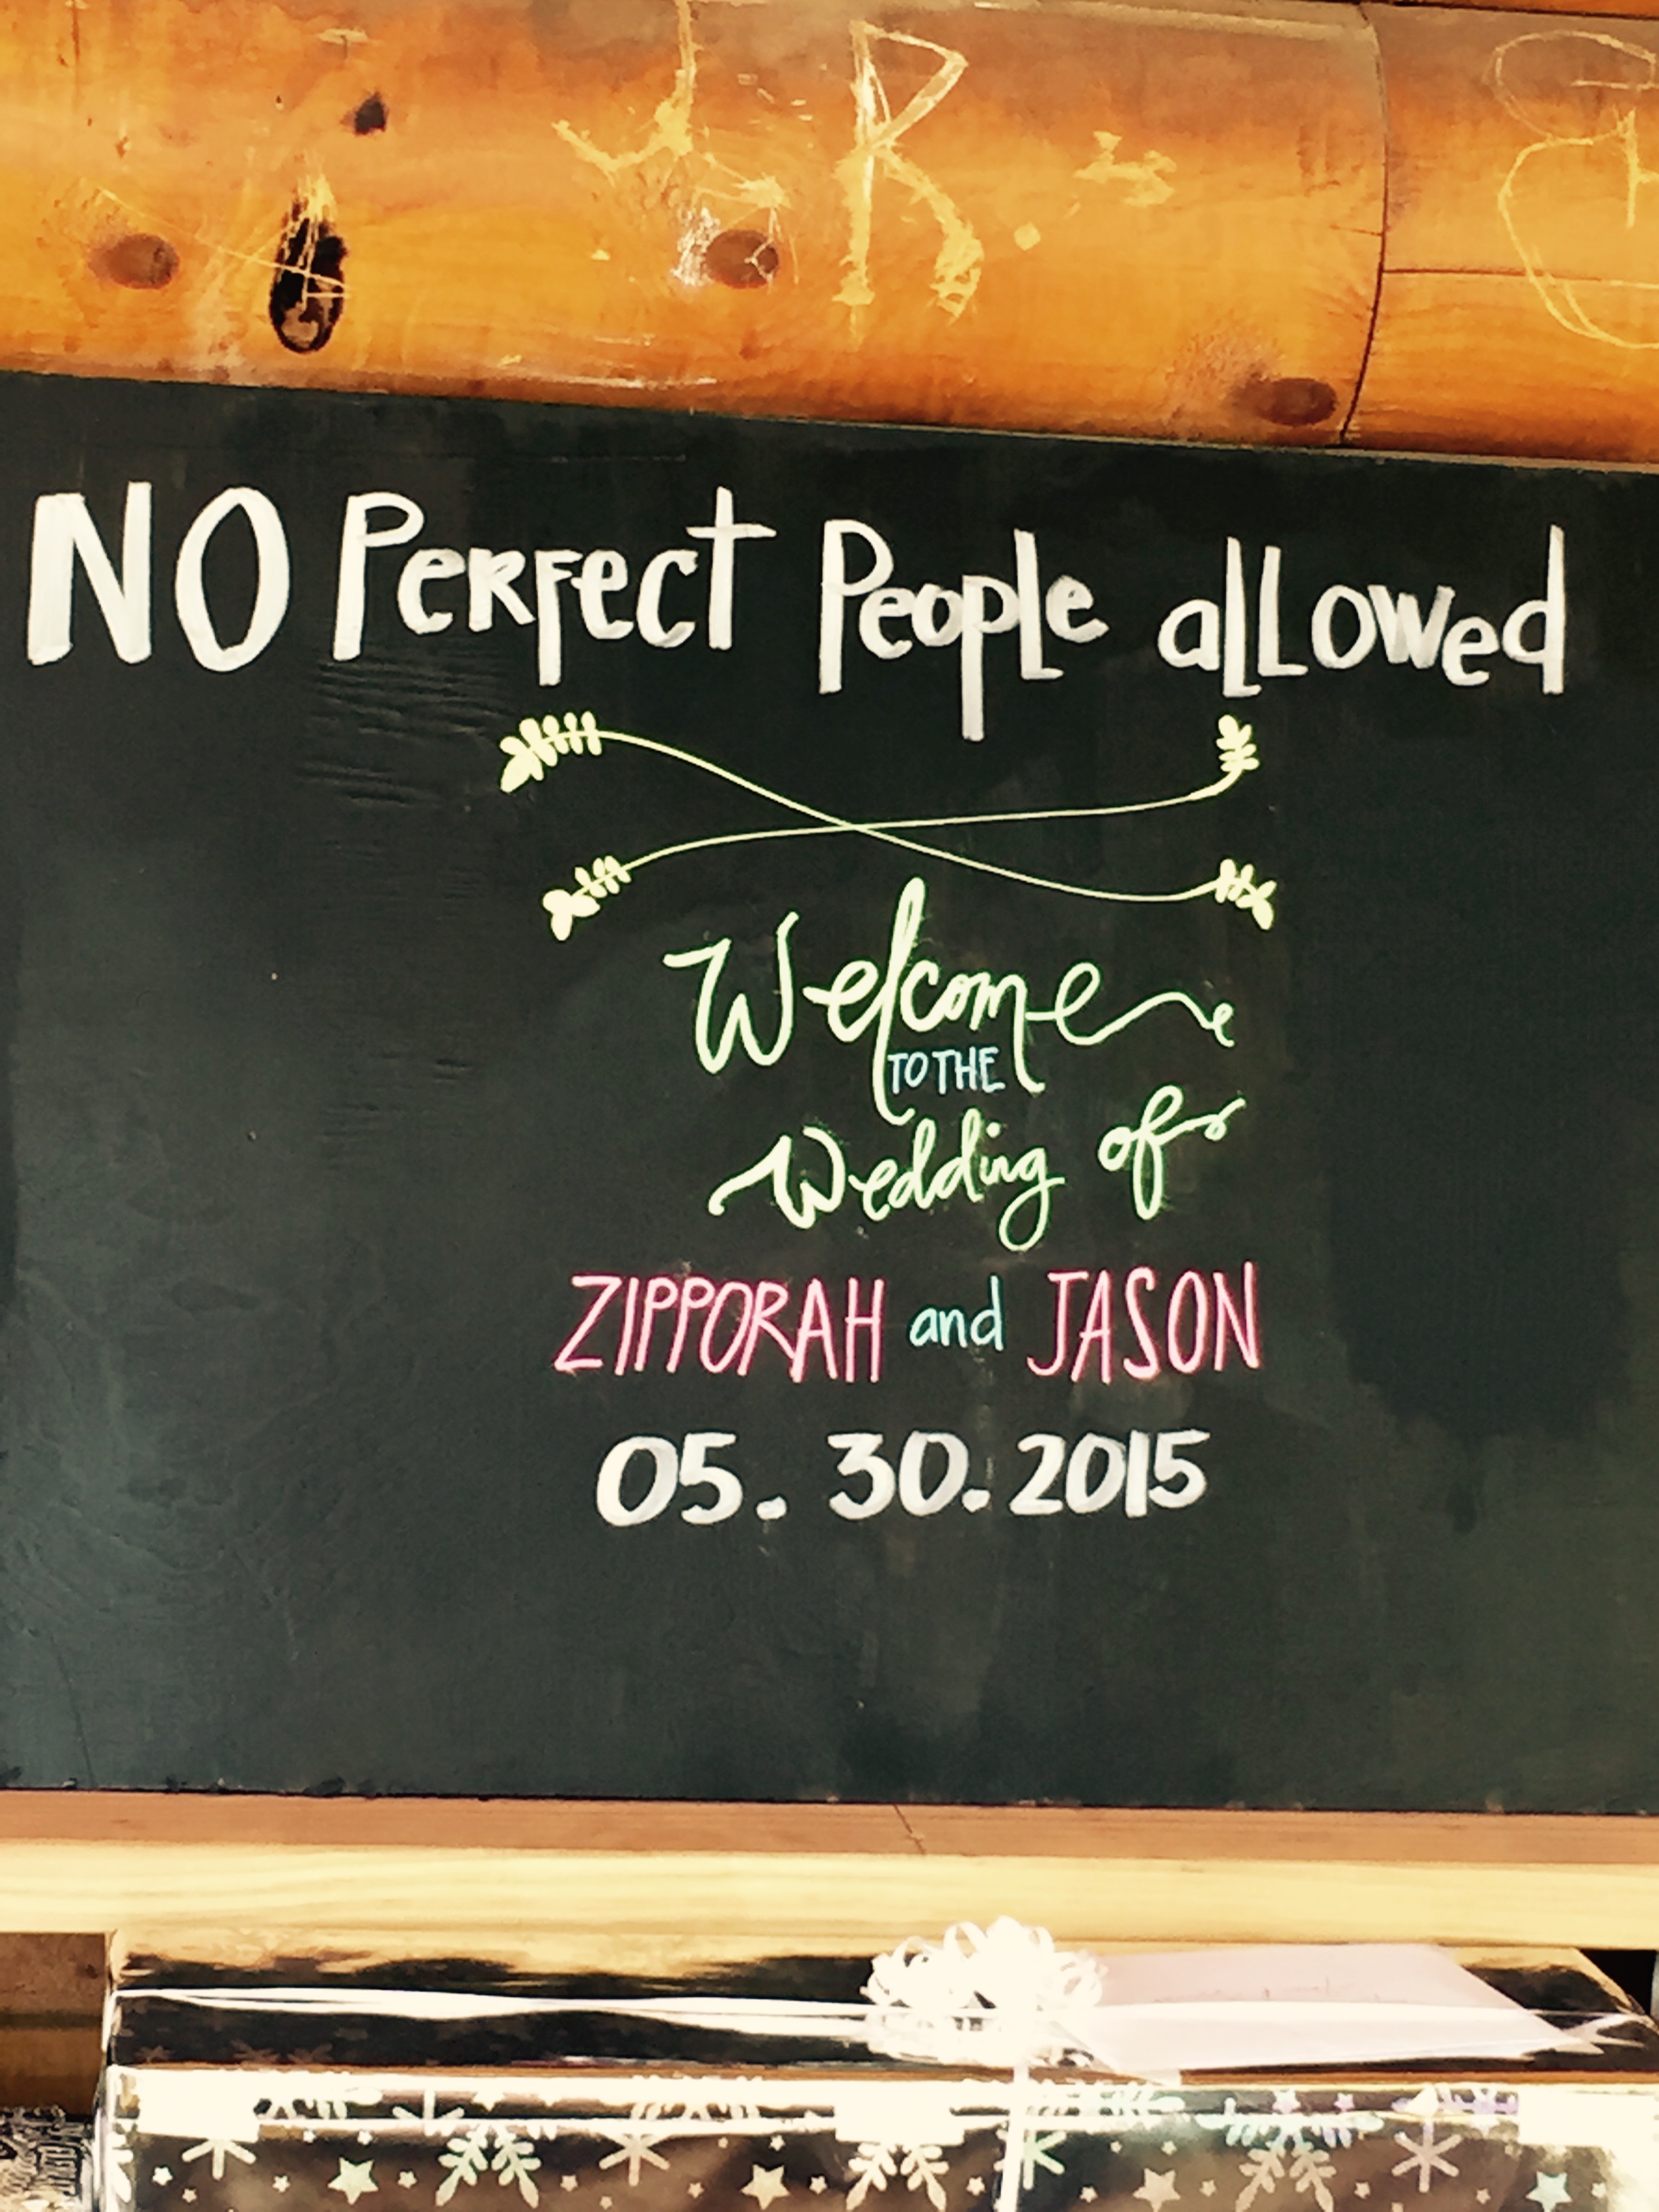 NO Perfect People allowed
Welcome
TO THE
Wedding of
ZIPPORAH and JASON
05. 30. 2015